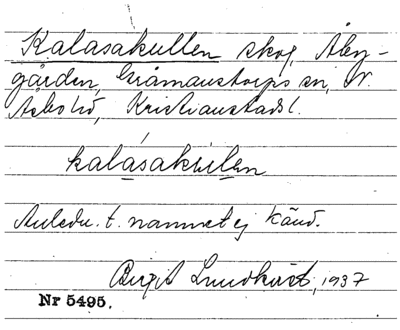 Kalasakullen skog, Åby-
gården, Gråmanstorps sn, N.
Åsbo hd, Kristianstads l.
kalásakùlen
Anledn. t. namnet ej känd.
Birgit Lundkvist, 1937
Nr 5495.